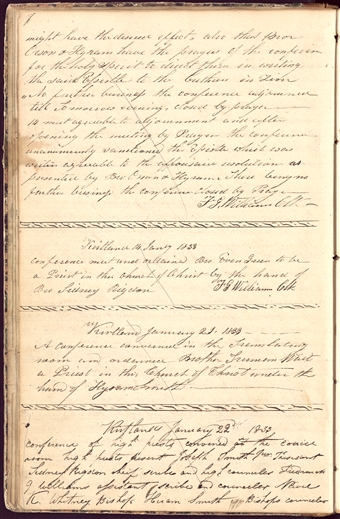 might have the desired effect. also that Bror
Orson & Hyram have the prayers of the conferen
for the holy Spirit to direct them in writing
the said Epistle to the brethren in Zion
No further business the conference adjourned
till tomorrow evening. closed by prayer
met agreeable to adjournment and after
opening the meeting by Prayer the conference
unanimously sanctioned the Epistle which was
written agreeable to the resolution as
presented by Bro Orson & Hyrum. There being no
further business the conference closed by Prayer
F. G. Williams Clk
Kirtland Jan 1833
conference met and ordained Bro Green to be
a Priest in this Church of Christ by the hand of
Bro Sidney Rigdon F G Williams Clk
Kirtland January 21. 1833
A conference convened in the Translating
room and ordained Brother Truman Wait
a Priest in this Church of Christ under the
hand of Hyrum Smith
Kirtland January 22d 1833
conference of high priests convened at the council
room high priests present Joseph Smith Jun President
Sidney Rigdon chief scribe and high counselor Frederick
G Williams assistant scribe and counselor Newel
K Whitney Bishop Hiram Smith Bishops counselor